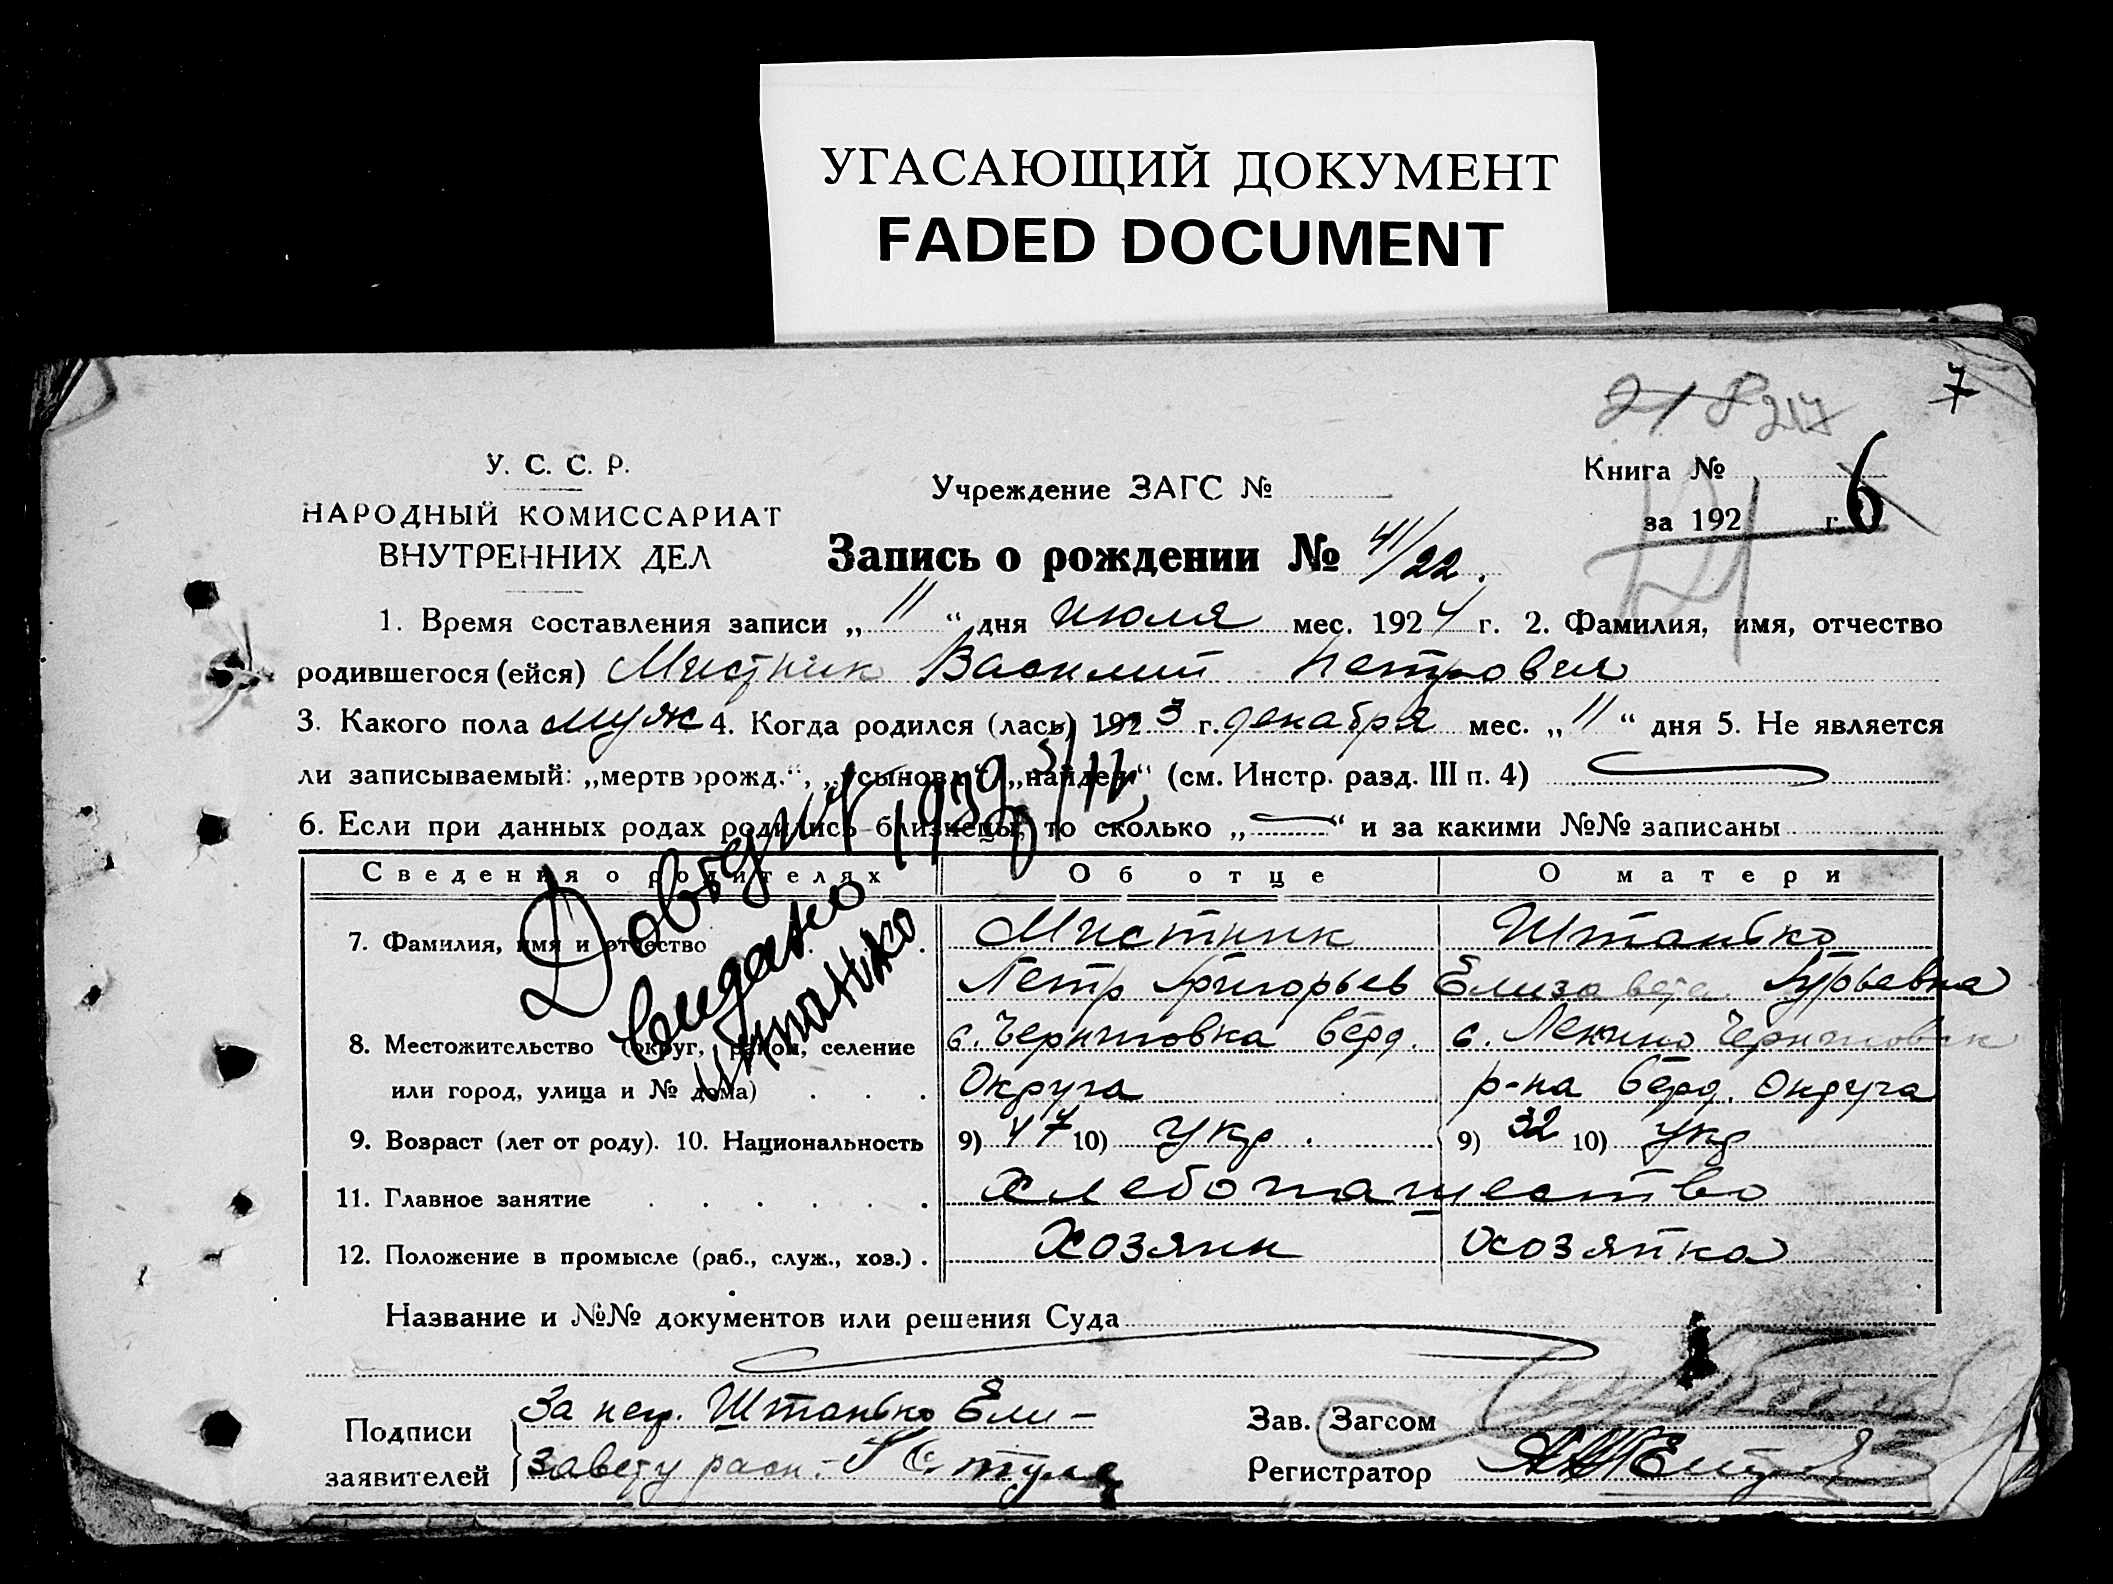 УГАСАЮЩИЙ ДОКУМЕНТ
FADED DOCUMENT
7
218 217
У. С. С. Р.
НАРОДНЫЙ КОМИССАРИАТ
ВНУТРЕННИХ ДЕЛ
Учреждение ЗАГС №
Книга №
за 192 г. 6
Запись о рождении № 41/22.
1. Время составления записи „ 11 “ дня июля мес. 1924 г. 2. Фамилия, имя, отчество
родившегося (ейся) Мистник Василий Петрович
3. Какого пола муж 4. Когда родился (лась) 1923 г. декабря мес. „ 11 “ дня 5. Не является
ли записываемый: „мертворожд.“, „усыновл.“, „найден“ (см. Инстр. разд. III п. 4)
6. Если при данных родах родились близнецы, то сколько „ “ и за какими №№ записаны
1939
видано
Штанько
Сведения о родителях Об отце О матери
7. Фамилия, имя и отчество Мистник Штанько
Петр Григорьев Елизавета Гурьевна
8. Местожительство (округ, район, селение с. Черниговка Берд. с. Ленино Черниговск
или город, улица и № дома) Округа р-на Берд. Округа
9. Возраст (лет от роду). 10. Национальность 9) 47 10) укр. 9) 32 10) укр
11. Главное занятие Хлебопашество
12. Положение в промысле (раб., служ., хоз.) Хозяин Хозяйка
Название и №№ документов или решения Суда
Подписи заявителей За негр. Штанько Ели-
завету расп.
Зав. Загсом
Регистратор